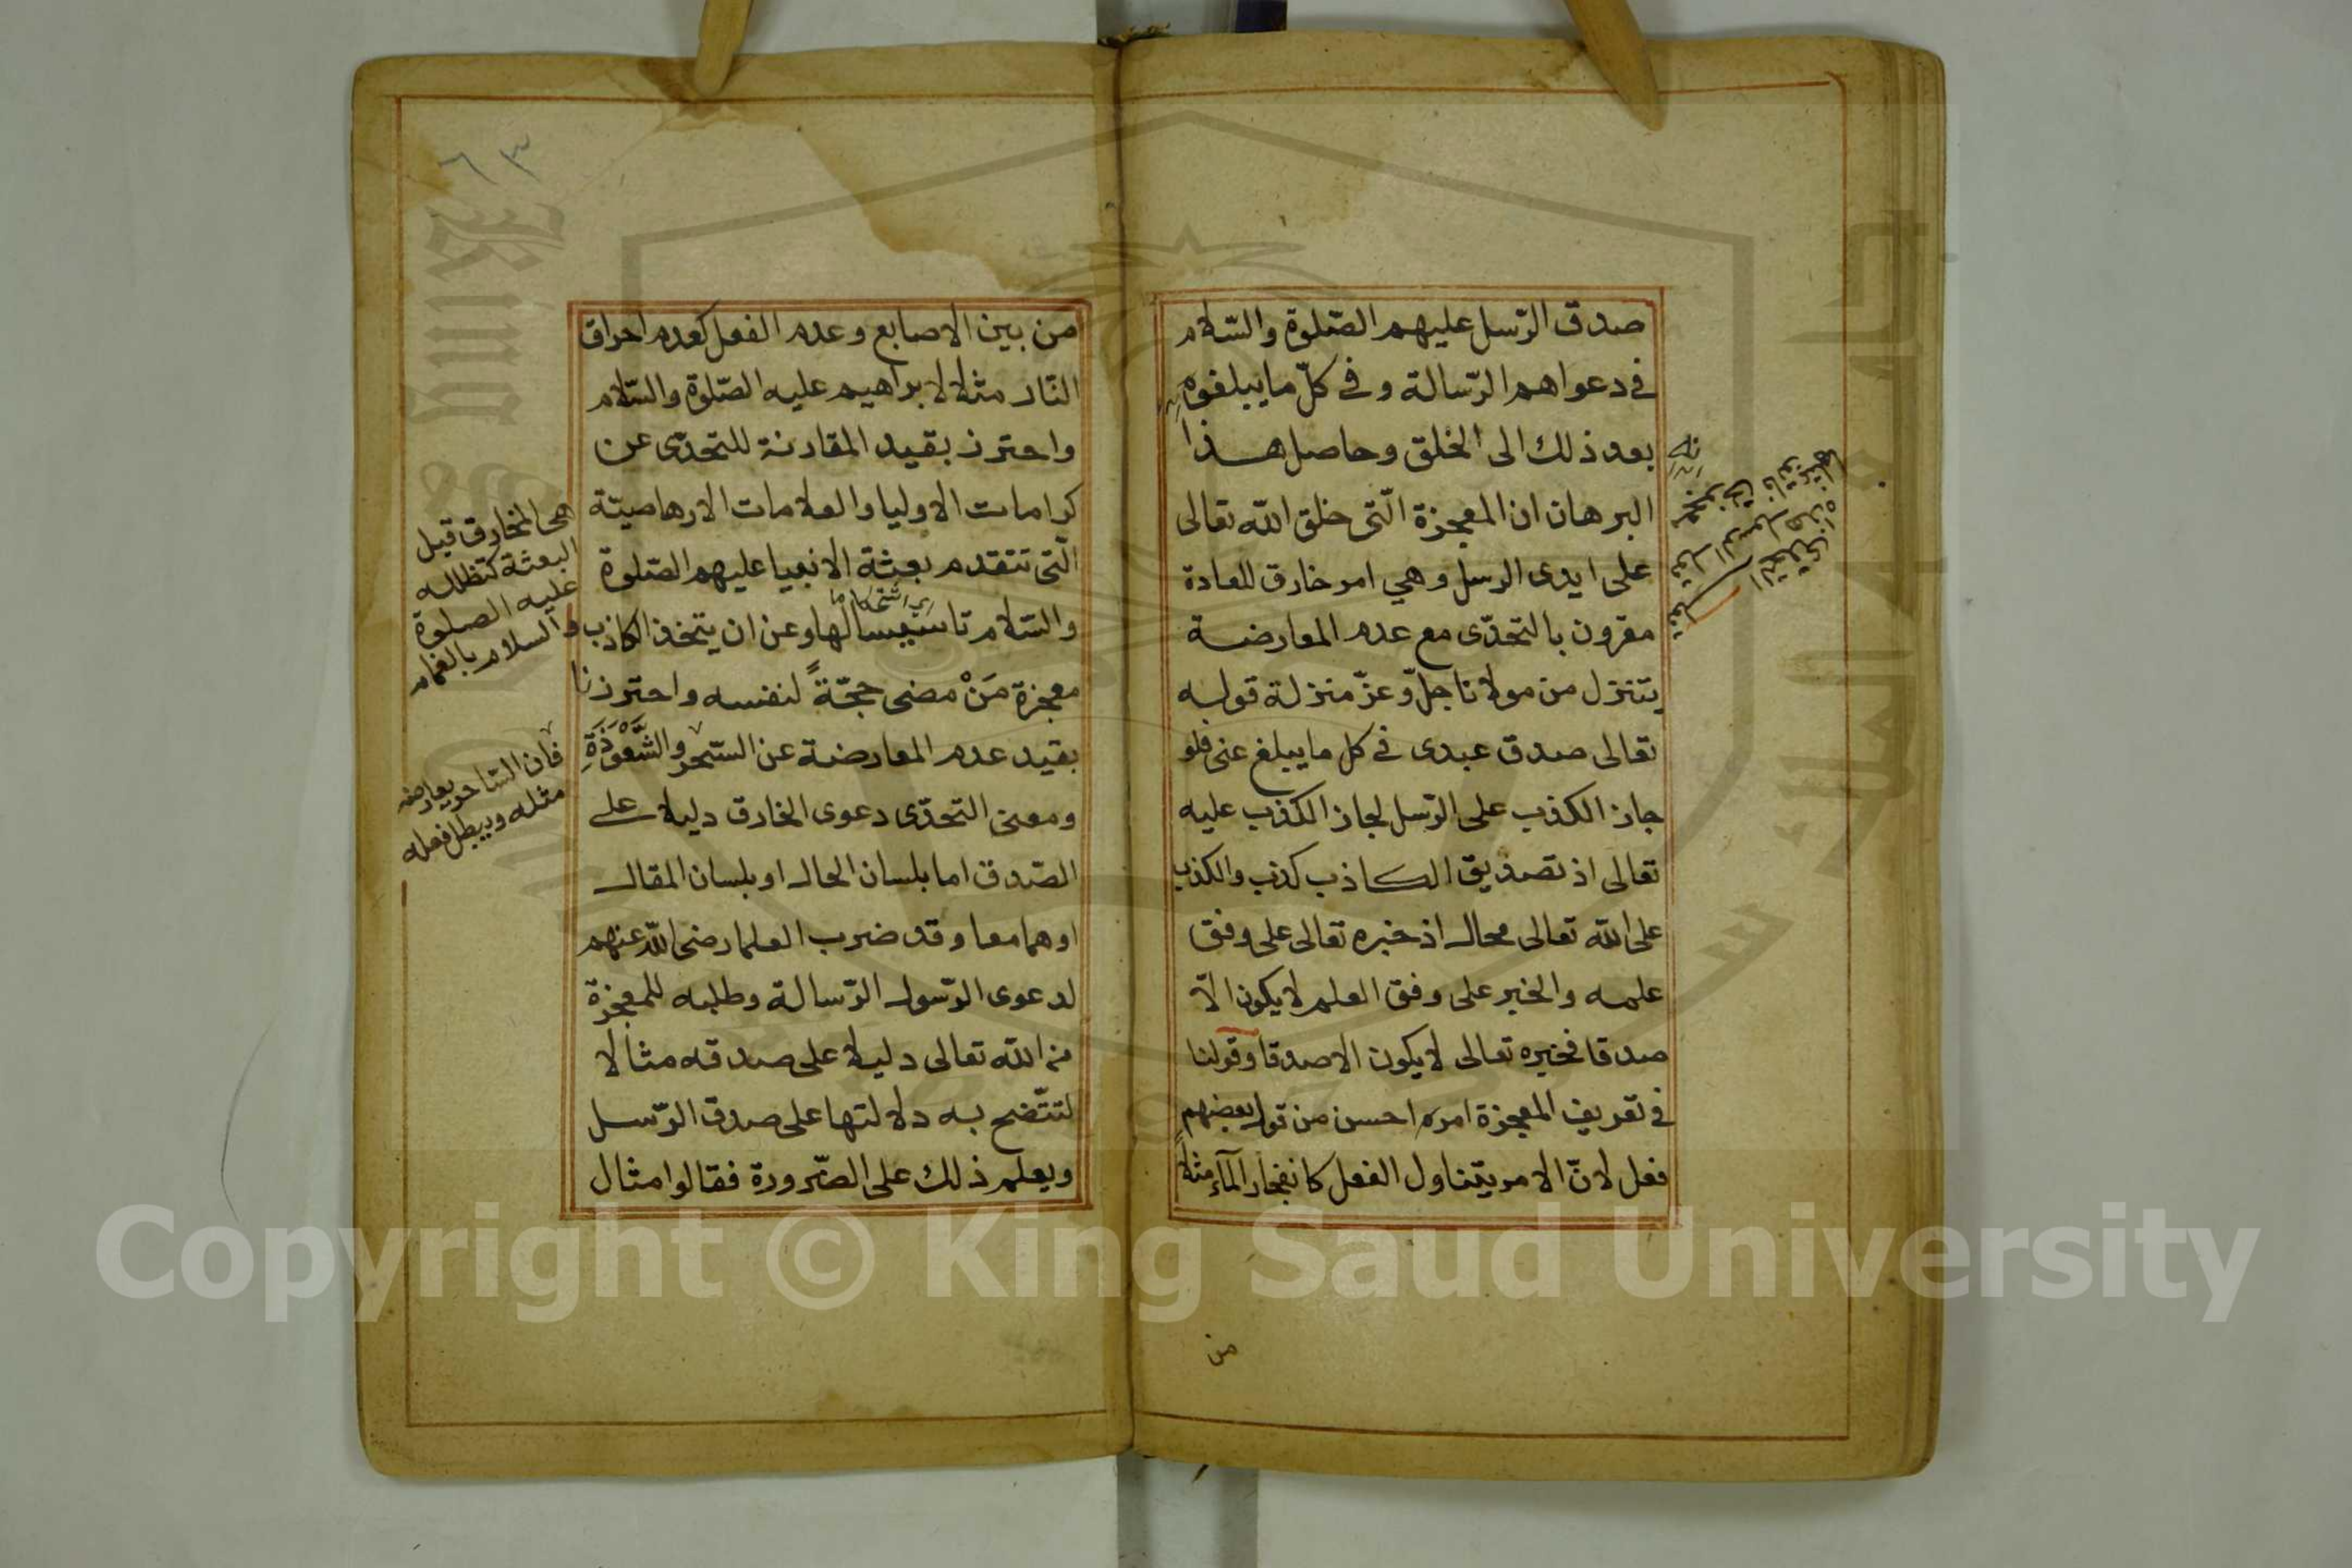 صدق الرّسل عليهم الصّلوة والسّلام
فى دعواهم الرّسالة و فى كلّ ما يبلغوه
بعد ذلك الى الخلق وحاصل هذا
البرهان ان المعجزة الّتى خلق اللّه تعالى
على ايدى الرسل وهي امر خارق للعادة
مقرون بالتحدّى مع عدم المعارضة
يتنزل من مولانا جلّ وعزّ منزلة قوله
تعالى صدق عبدى فى كل ما يبلغ عنى فلو
جاز الكذب على الرّسل لجاز الكذب عليه
تعالى اذ تصديق الكاذب كذب والكذب
على اللّه تعالى محال اذ خبره تعالى على وفق
علمه والخبر على وفق العلم لا يكون الاّ
صدقا فخبره تعالى لا يكون الا صدقا وقولنا
فى تعريف المعجزة امر احسن من قول بعضهم
فعل لانّ الامر يتناول الفعل كانفجار المآء مثلاً
من
٦٣
من بين الاصابع وعدم الفعل كعدم احراق
النّار مثلا لابراهيم عليه الصّلوة والسّلام
واحترز بقيد المقارنة للتحدّى عن
كرامات الاوليا والعلامات الارهاصيّة
الّتى تتقدم بعثة الانبيا عليهم الصّلوة
اى استحكاما
والسّلام تاسيسا لها وعن ان يتخذ الكاذب
معجزة مَنْ مضى حجّةً لنفسه واحترزنا
بقيد عدم المعارضة عن السّحر والشَّعْوَذَةِ
ومعنى التحدّى دعوى الخارق دليلا على
الصّدق اما بلسان الحال او بلسان المقال
اوهما معا وقد ضرب العلما رضى اللّه عنهم
لدعوى الرّسول الرّسالة وطلبه للمعجزة
من اللّه تعالى دليلا على صدقه مثالا
لتتّضح به دلالتها على صدق الرّسل
ويعلم ذلك على الضّرورة فقالوا مثال
هى الخارق قبل
البعثة كتظلله
عليه الصلوة
والسلام بالغمام
فان السّاحر يعارضه
مثله ويبطل فعله
Copyright © King Saud University